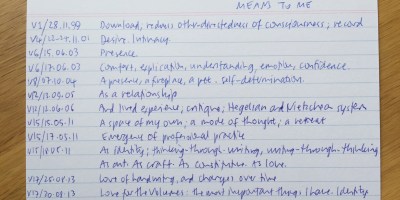 MEANS TO ME
V1/28.11.99 Download, redress other-directedness of consciousness; record
Desire. Intimacy.
V6/15.06.03 Presence.
V6/17.06.03 Comfort, explication, understanding, emotion, confidence.
V8/07.10.04 A presence, a fireplace, a pet. Self-determination.
As a relationship
And lived experience, critique, Hegelian and Nietzschean system
V15/15.05.11 A space of my own; a mode of thought; a retreat
V15/17.05.11 Emergence of professional practice
V15/19.05.11 As identity; thinking-through-writing, writing-through-thinking
As art. As craft. As constitutive. As love.
V17/25.08.13 Love of handwriting, and changes over time
V17/30.08.13 Love for the Volumes: the most important things I have. Identity